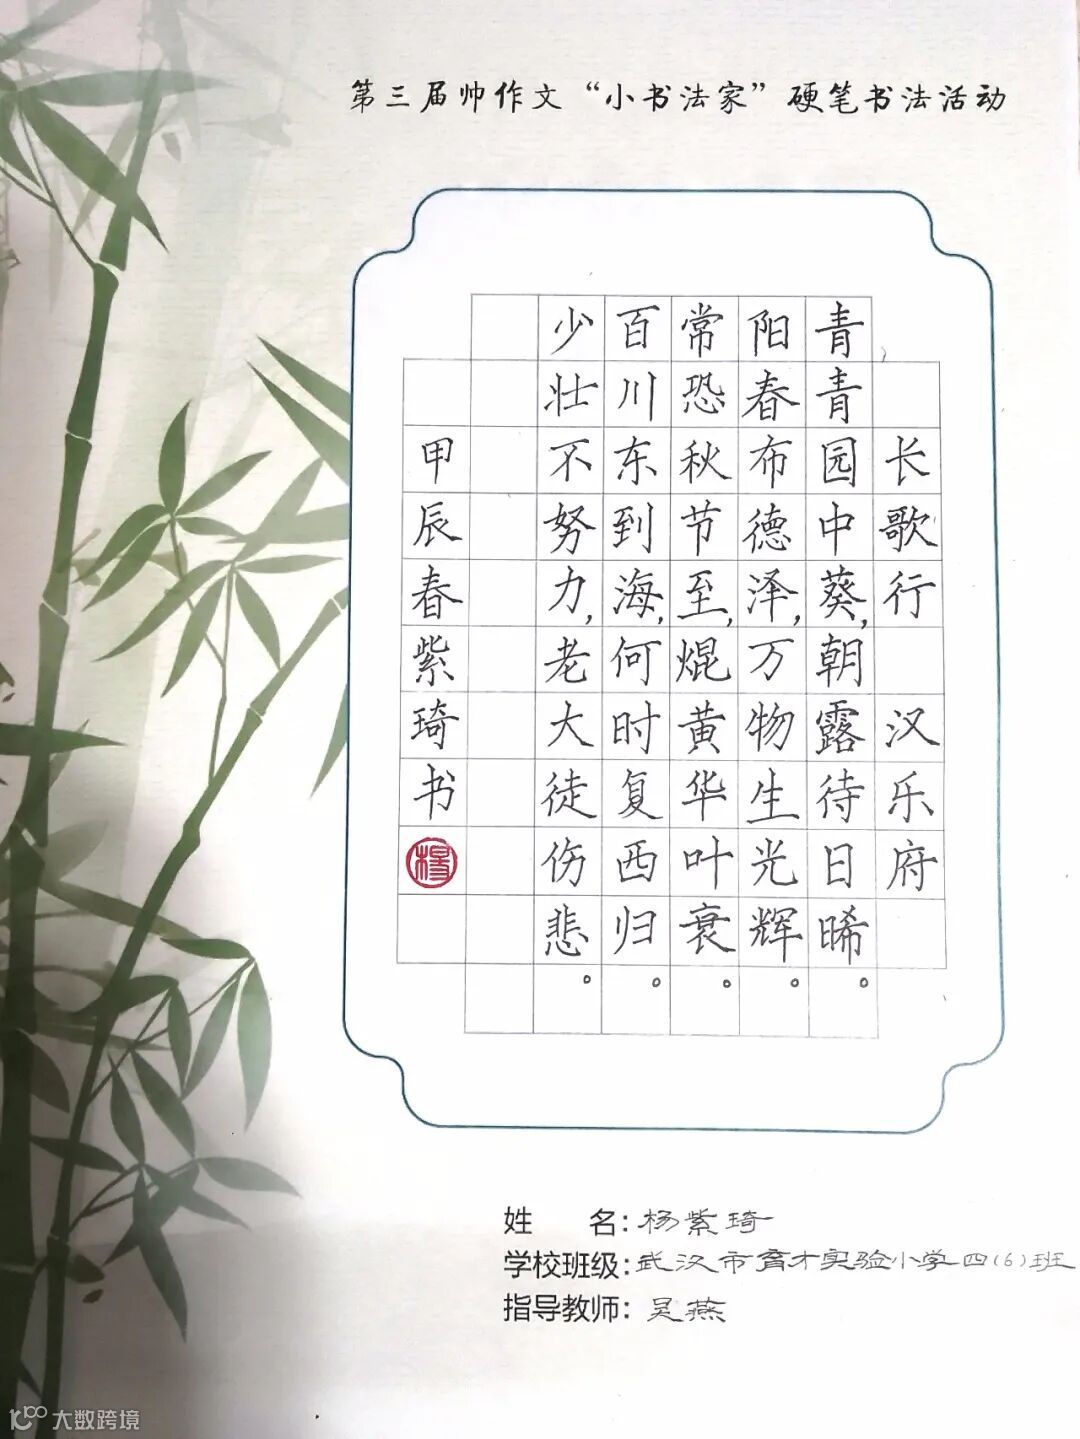 第三届帅作文“小书法家”硬笔书法活动
长歌行 汉乐府
青青园中葵,朝露待日晞。
阳春布德泽,万物生光辉。
常恐秋节至,焜黄华叶衰。
百川东到海,何时复西归。
少壮不努力,老大徒伤悲。
甲辰春紫琦书
杨
姓 名:杨紫琦
学校班级:武汉市育才实验小学四(6)班
指导教师:吴燕
大数跨境